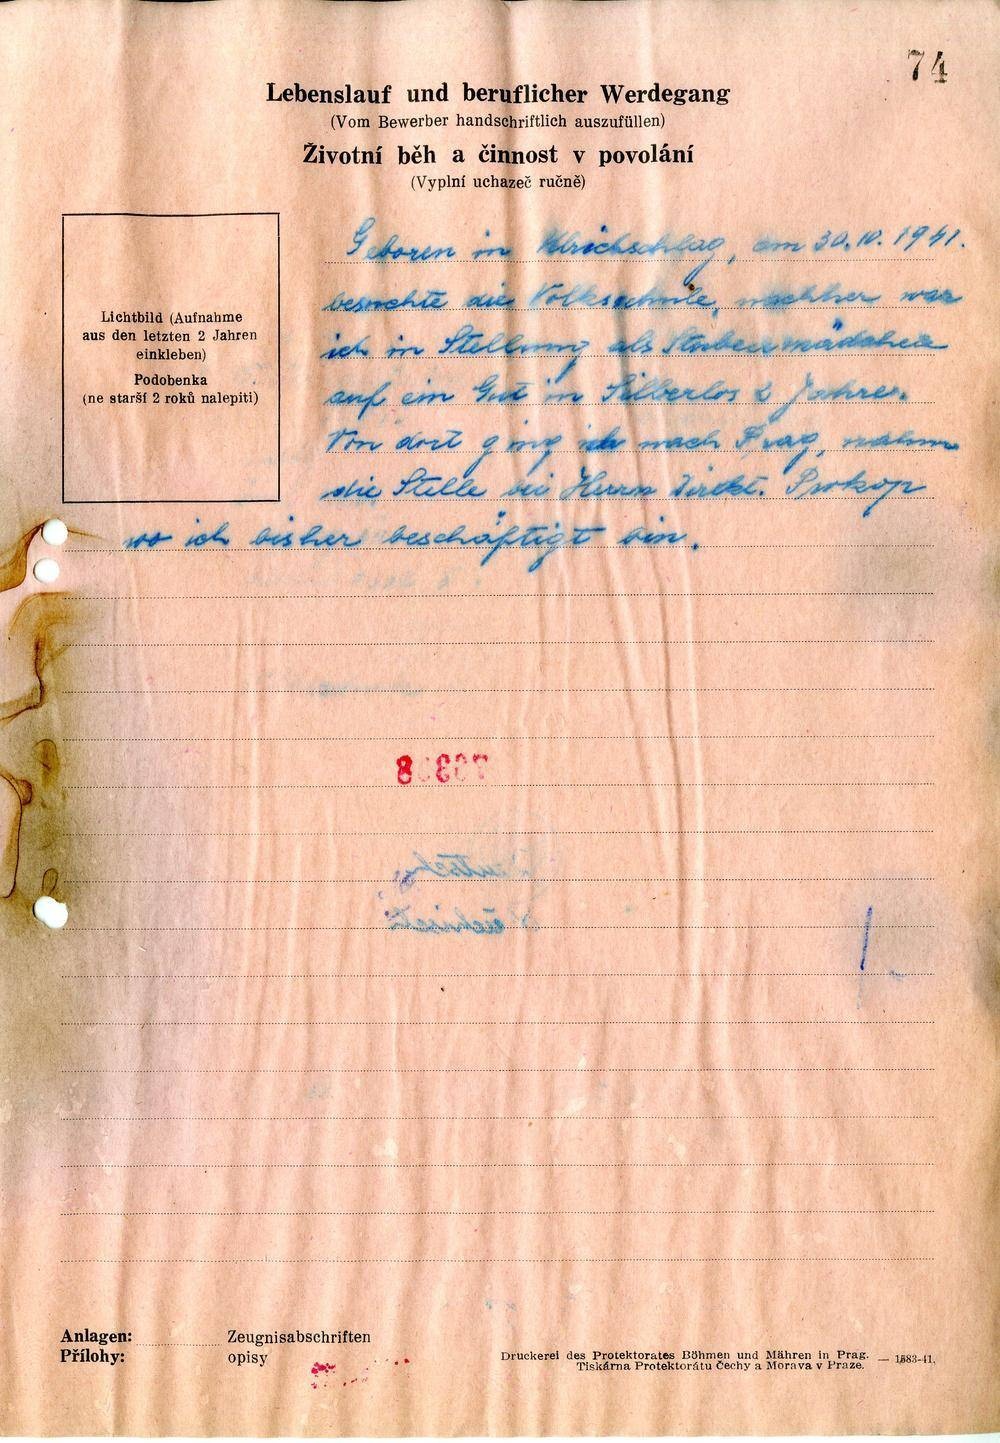 74
Lebenslauf und beruflicher Werdegang
(Vom Bewerber handschriftlich auszufüllen)
Životní běh a činnost v povolání
(Vyplní uchazeč ručně)
Lichtbild (Aufnahme
aus den letzten 2 Jahren
einkleben)
Podobenka
(ne starší 2 roků nalepiti)
Geboren in Ulrichschlag, am 30.10.1941.
besuchte die Volksschule, nachher war
ich in Stellung als Stubenmädchen
auf ein Gut in Silberlos 2 Jahre.
Von dort ging ich nach Prag, nahm
die Stelle bei Herrn Direkt. Prokop
wo ich bisher beschäftigt bin.
Anlagen: Zeugnisabschriften
Přílohy: opisy
Druckerei des Protektorates Böhmen und Mähren in Prag.
Tiskárna Protektorátu Čechy a Morava v Praze. — 1583-41.